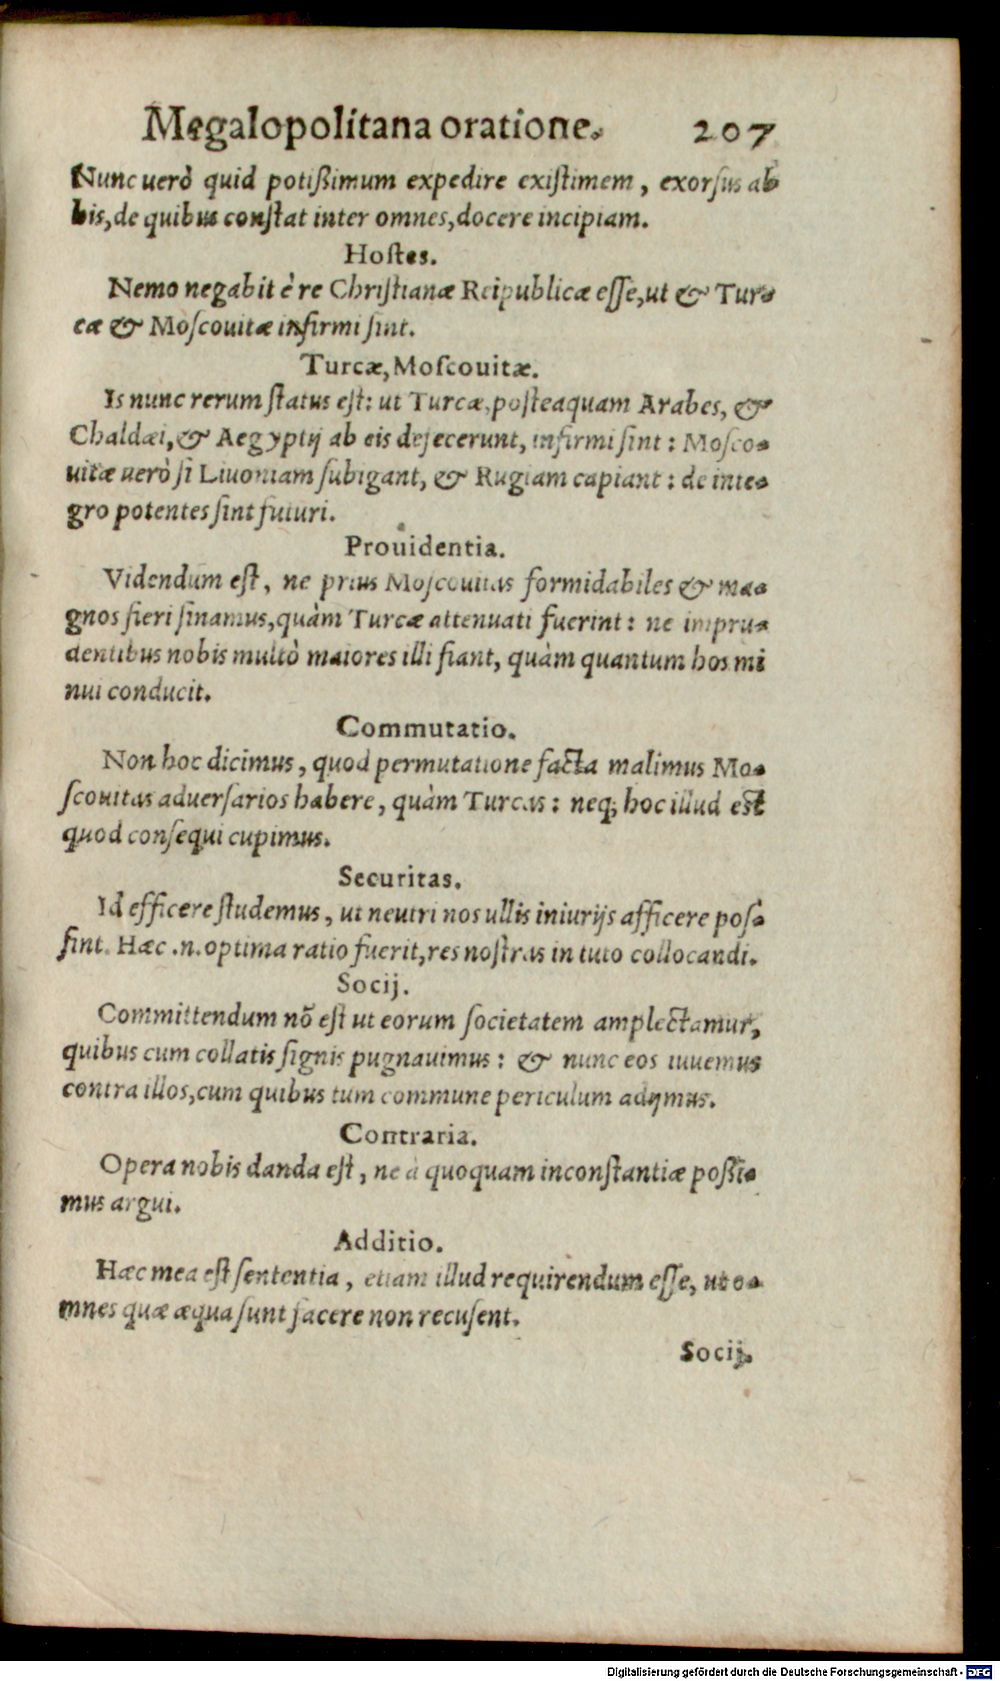 Megalopolitana oratione. 207
Nunc uerò quid potißimum expedire existimem, exorsus ab
his, de quibus constat inter omnes, docere incipiam.
Hostes.
Nemo negabit è re Christianæ Reipublicæ esse, ut & Tur-
cæ & Moscouitæ infirmi sint.
Turcæ, Moscouitæ.
Is nunc rerum status est: ut Turcæ, posteaquam Arabes, &
Chaldæi, & Aegyptij ab eis dejecerunt, infirmi sint: Mosco-
uitæ uerò si Liuoniam subigant, & Rugiam capiant: de inte-
gro potentes sint futuri.
Prouidentia.
Videndum est, ne prius Moscouitas formidabiles & ma-
gnos fieri sinamus, quàm Turcæ attenuati fuerint: ne impru-
dentibus nobis multò maiores illi fiant, quàm quantum hos mi
nui conducit.
Commutatio.
Non hoc dicimus, quod permutatione facta malimus Mo-
scouitas aduersarios habere, quàm Turcas: neq; hoc illud est
quod consequi cupimus.
Securitas.
Id efficere studemus, ut neutri nos ullis iniurijs afficere pos-
sint. Hæc .n. optima ratio fuerit, res nostras in tuto collocandi.
Socij.
Committendum nō est ut eorum societatem amplectamur,
quibus cum collatis signis pugnauimus: & nunc eos iuuemus
contra illos, cum quibus tum commune periculum adijmus.
Contraria.
Opera nobis danda est, ne à quoquam inconstantiæ poßi-
mus argui.
Additio.
Hæc mea est sententia, etiam illud requirendum esse, ut o-
mnes quæ æqua sunt facere non recusent.
Socij.
Digitalisierung gefördert durch die Deutsche Forschungsgemeinschaft - DFG